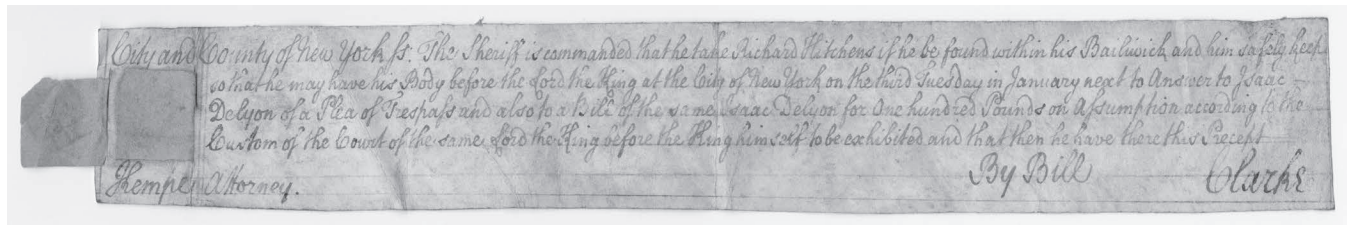 City and County of New York ſs. The Sheriff is commanded that he take Richard Hitchens if he be found within his Bailiwick and him safely keep
so that he may have his Body before the Lord the King at the City of New York on the third Tuesday in January next to Answer to Isaac
Delyon of a Plea of Trespass and also to a Bill of the same Isaac Delyon for One hundred Pounds on Assumption according to the
Custom of the Court of the same Lord the King before the King himself to be exhibited and that then he have there this Precept
By Bill Clarke
Kempe Attorney.